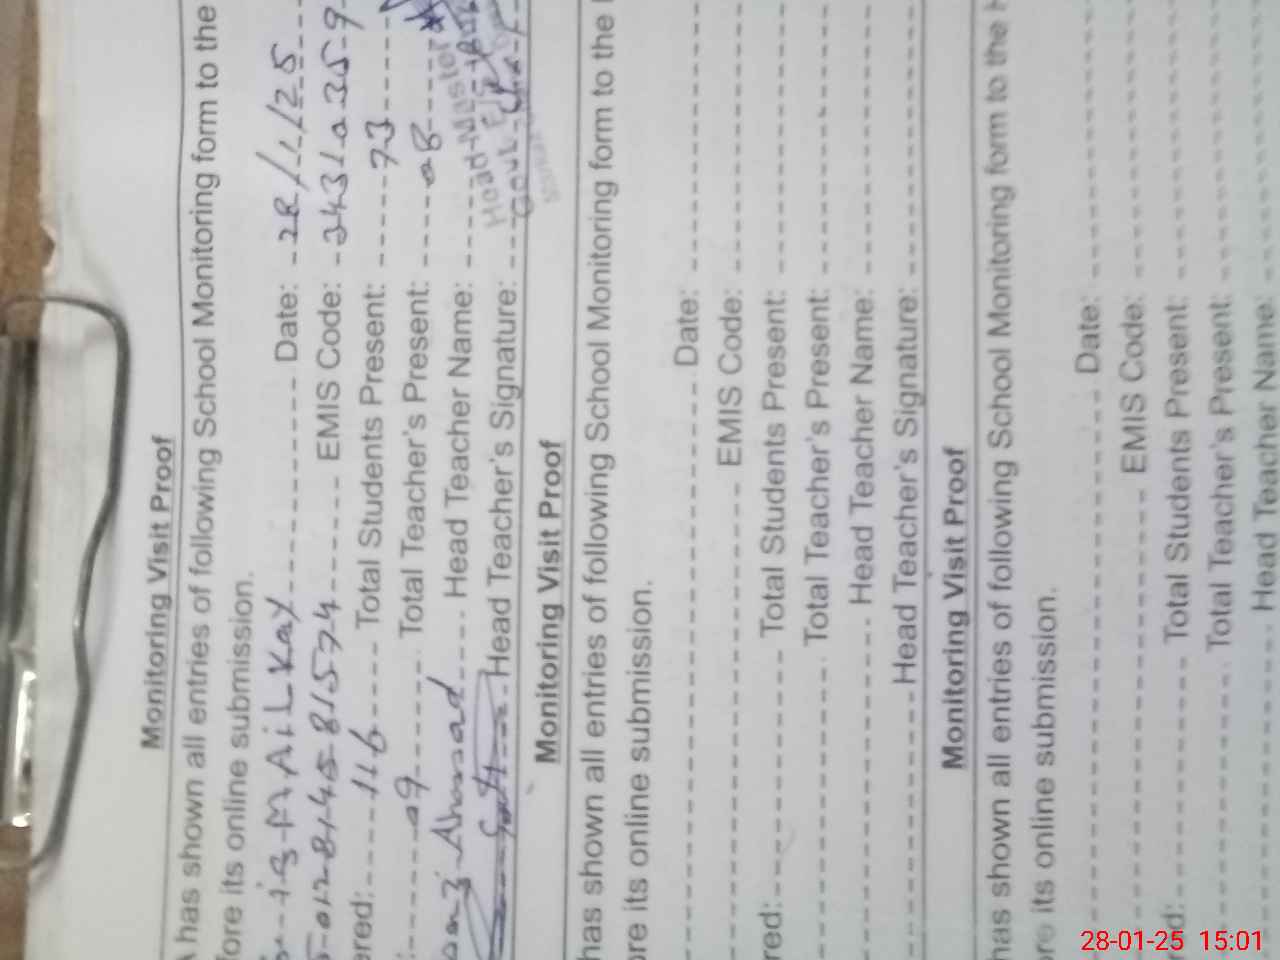 Monitoring Visit Proof
has shown all entries of following School Monitoring form to the
fore its online submission.
Date: 28/1/25
EMIS Code:
ered: 116 Total Students Present: 73
09 Total Teacher's Present: 08
Ahmad Head Teacher Name:
Head Teacher's Signature:
Head Master
Govt.
Monitoring Visit Proof
has shown all entries of following School Monitoring form to the
ore its online submission.
Date:
EMIS Code:
red: Total Students Present:
Total Teacher's Present:
Head Teacher Name:
Head Teacher's Signature:
Monitoring Visit Proof
has shown all entries of following School Monitoring form to the
re its online submission.
Date:
EMIS Code:
red: Total Students Present:
Total Teacher's Present:
Head Teacher Name:
28-01-25 15:01